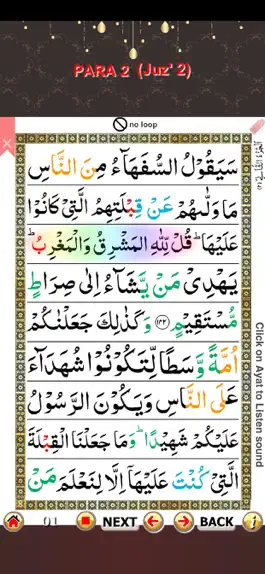 PARA 2 (Juz' 2)
no loop
سَيَقُوْلُ السُّفَهَآءُ مِنَ النَّاسِ
مَا وَلّٰىهُمْ عَنْ قِبْلَتِهِمُ الَّتِيْ كَانُوْا
عَلَيْهَا ؕ قُلْ لِّلّٰهِ الْمَشْرِقُ وَالْمَغْرِبُ ؕ
يَهْدِيْ مَنْ يَّشَآءُ اِلٰى صِرَاطٍ
مُّسْتَقِيْمٍ ۝۱۴۲ وَكَذٰلِكَ جَعَلْنٰكُمْ
اُمَّةً وَّسَطًا لِّتَكُوْنُوْا شُهَدَآءَ
عَلَى النَّاسِ وَيَكُوْنَ الرَّسُوْلُ
عَلَيْكُمْ شَهِيْدًا ؕ وَمَا جَعَلْنَا الْقِبْلَةَ
الَّتِيْ كُنْتَ عَلَيْهَآ اِلَّا لِنَعْلَمَ مَنْ
Click on Ayat to Listen sound
01 NEXT BACK i